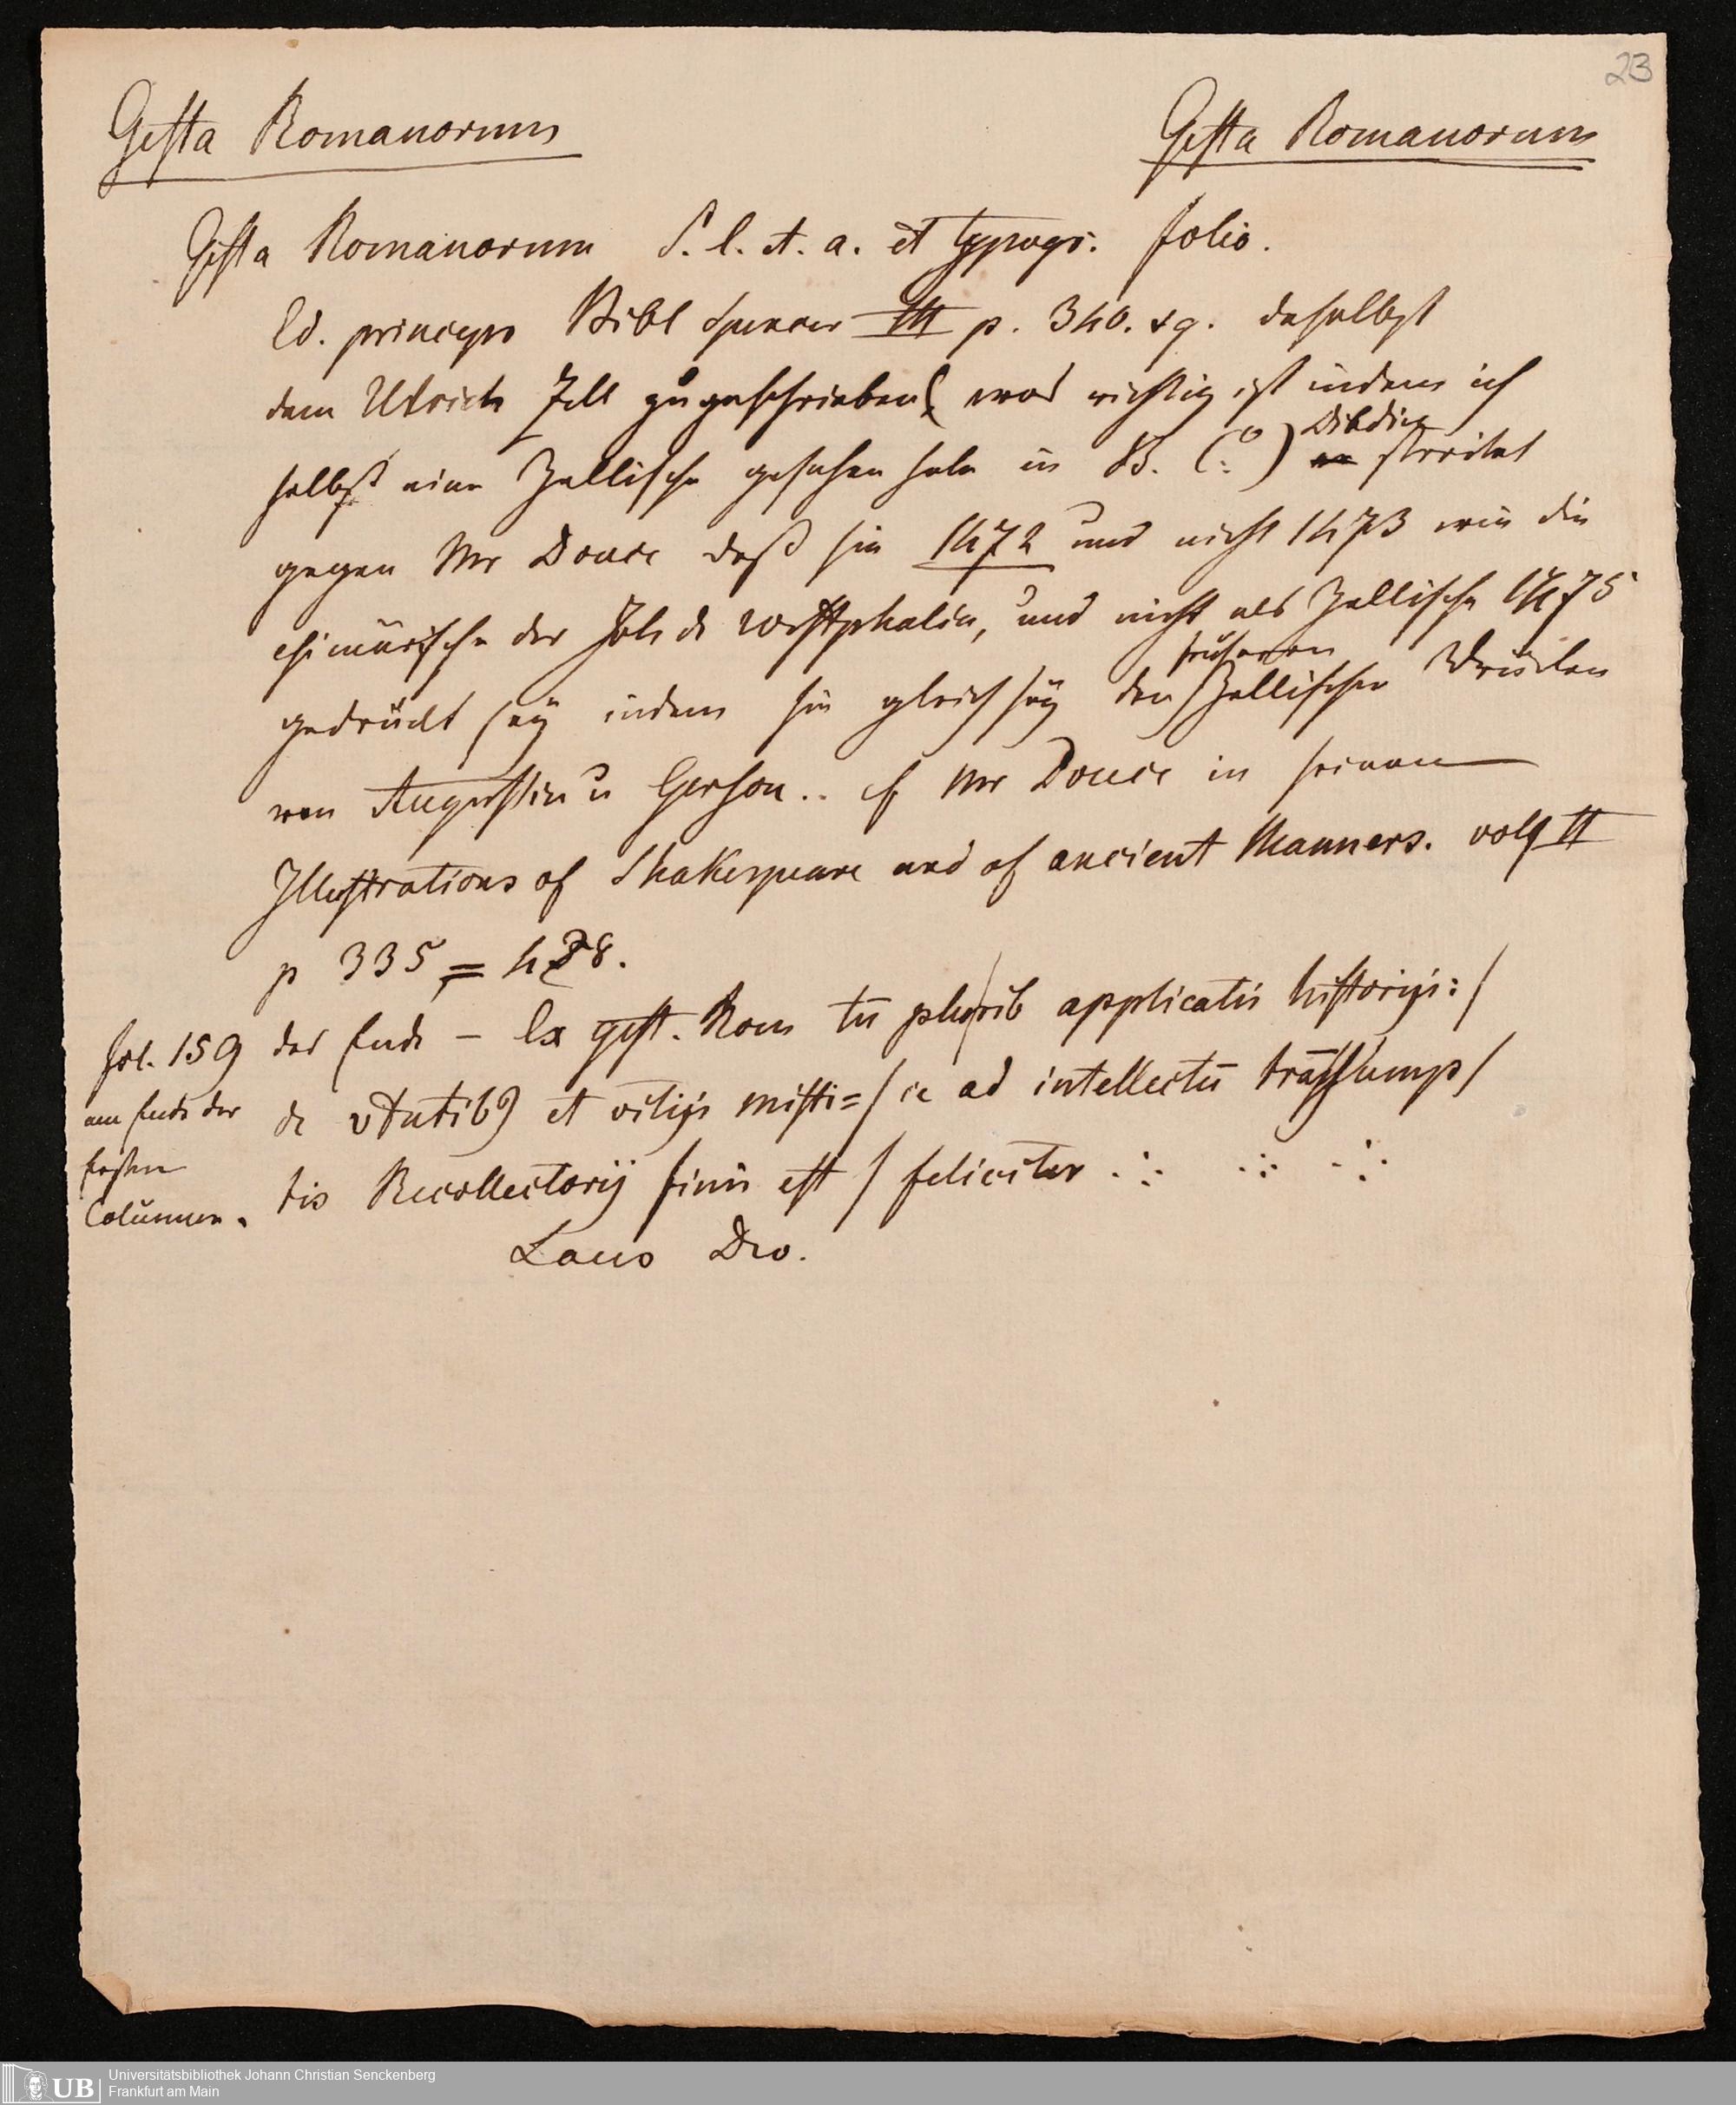 23
Gesta Romanorum
Gesta Romanorum
Gesta Romanorum S. l. et. a. et typogr. folio.
Ed. princeps Bibl Spencer III p. 340. sq. daselbst
dem Ulrich Zell zugeschrieben( was richtig ist indem ich
selbst eine Zellische gesehen habe in B. ) Dibdin streitet
gegen Mr Douce daß sie 1472 und nicht 1473 wie die
chimärische der Joh de Westphalia, und nicht als Zellische 1475
gedrückt seÿ indem sie gleich seÿ den früheren Zellischen Drücken
von Augustin u Gerson.. cf Mr Douce in seinen
Illustrations of Shakespeare and of ancient Manners. vol II
p 335 = 428.
fol. 159
am Ende der
ersten
Columne.
das Ende – Ex gest. Rom cū plurib applicatis historijs: /
de vtutib9 et vitijs misti= / ce ad intellectū trāssump /
tis Recollectorij finis est / feliciter .:. .:. .:.
Laus Deo.
Universitätsbibliothek Johann Christian Senckenberg
Frankfurt am Main
UB